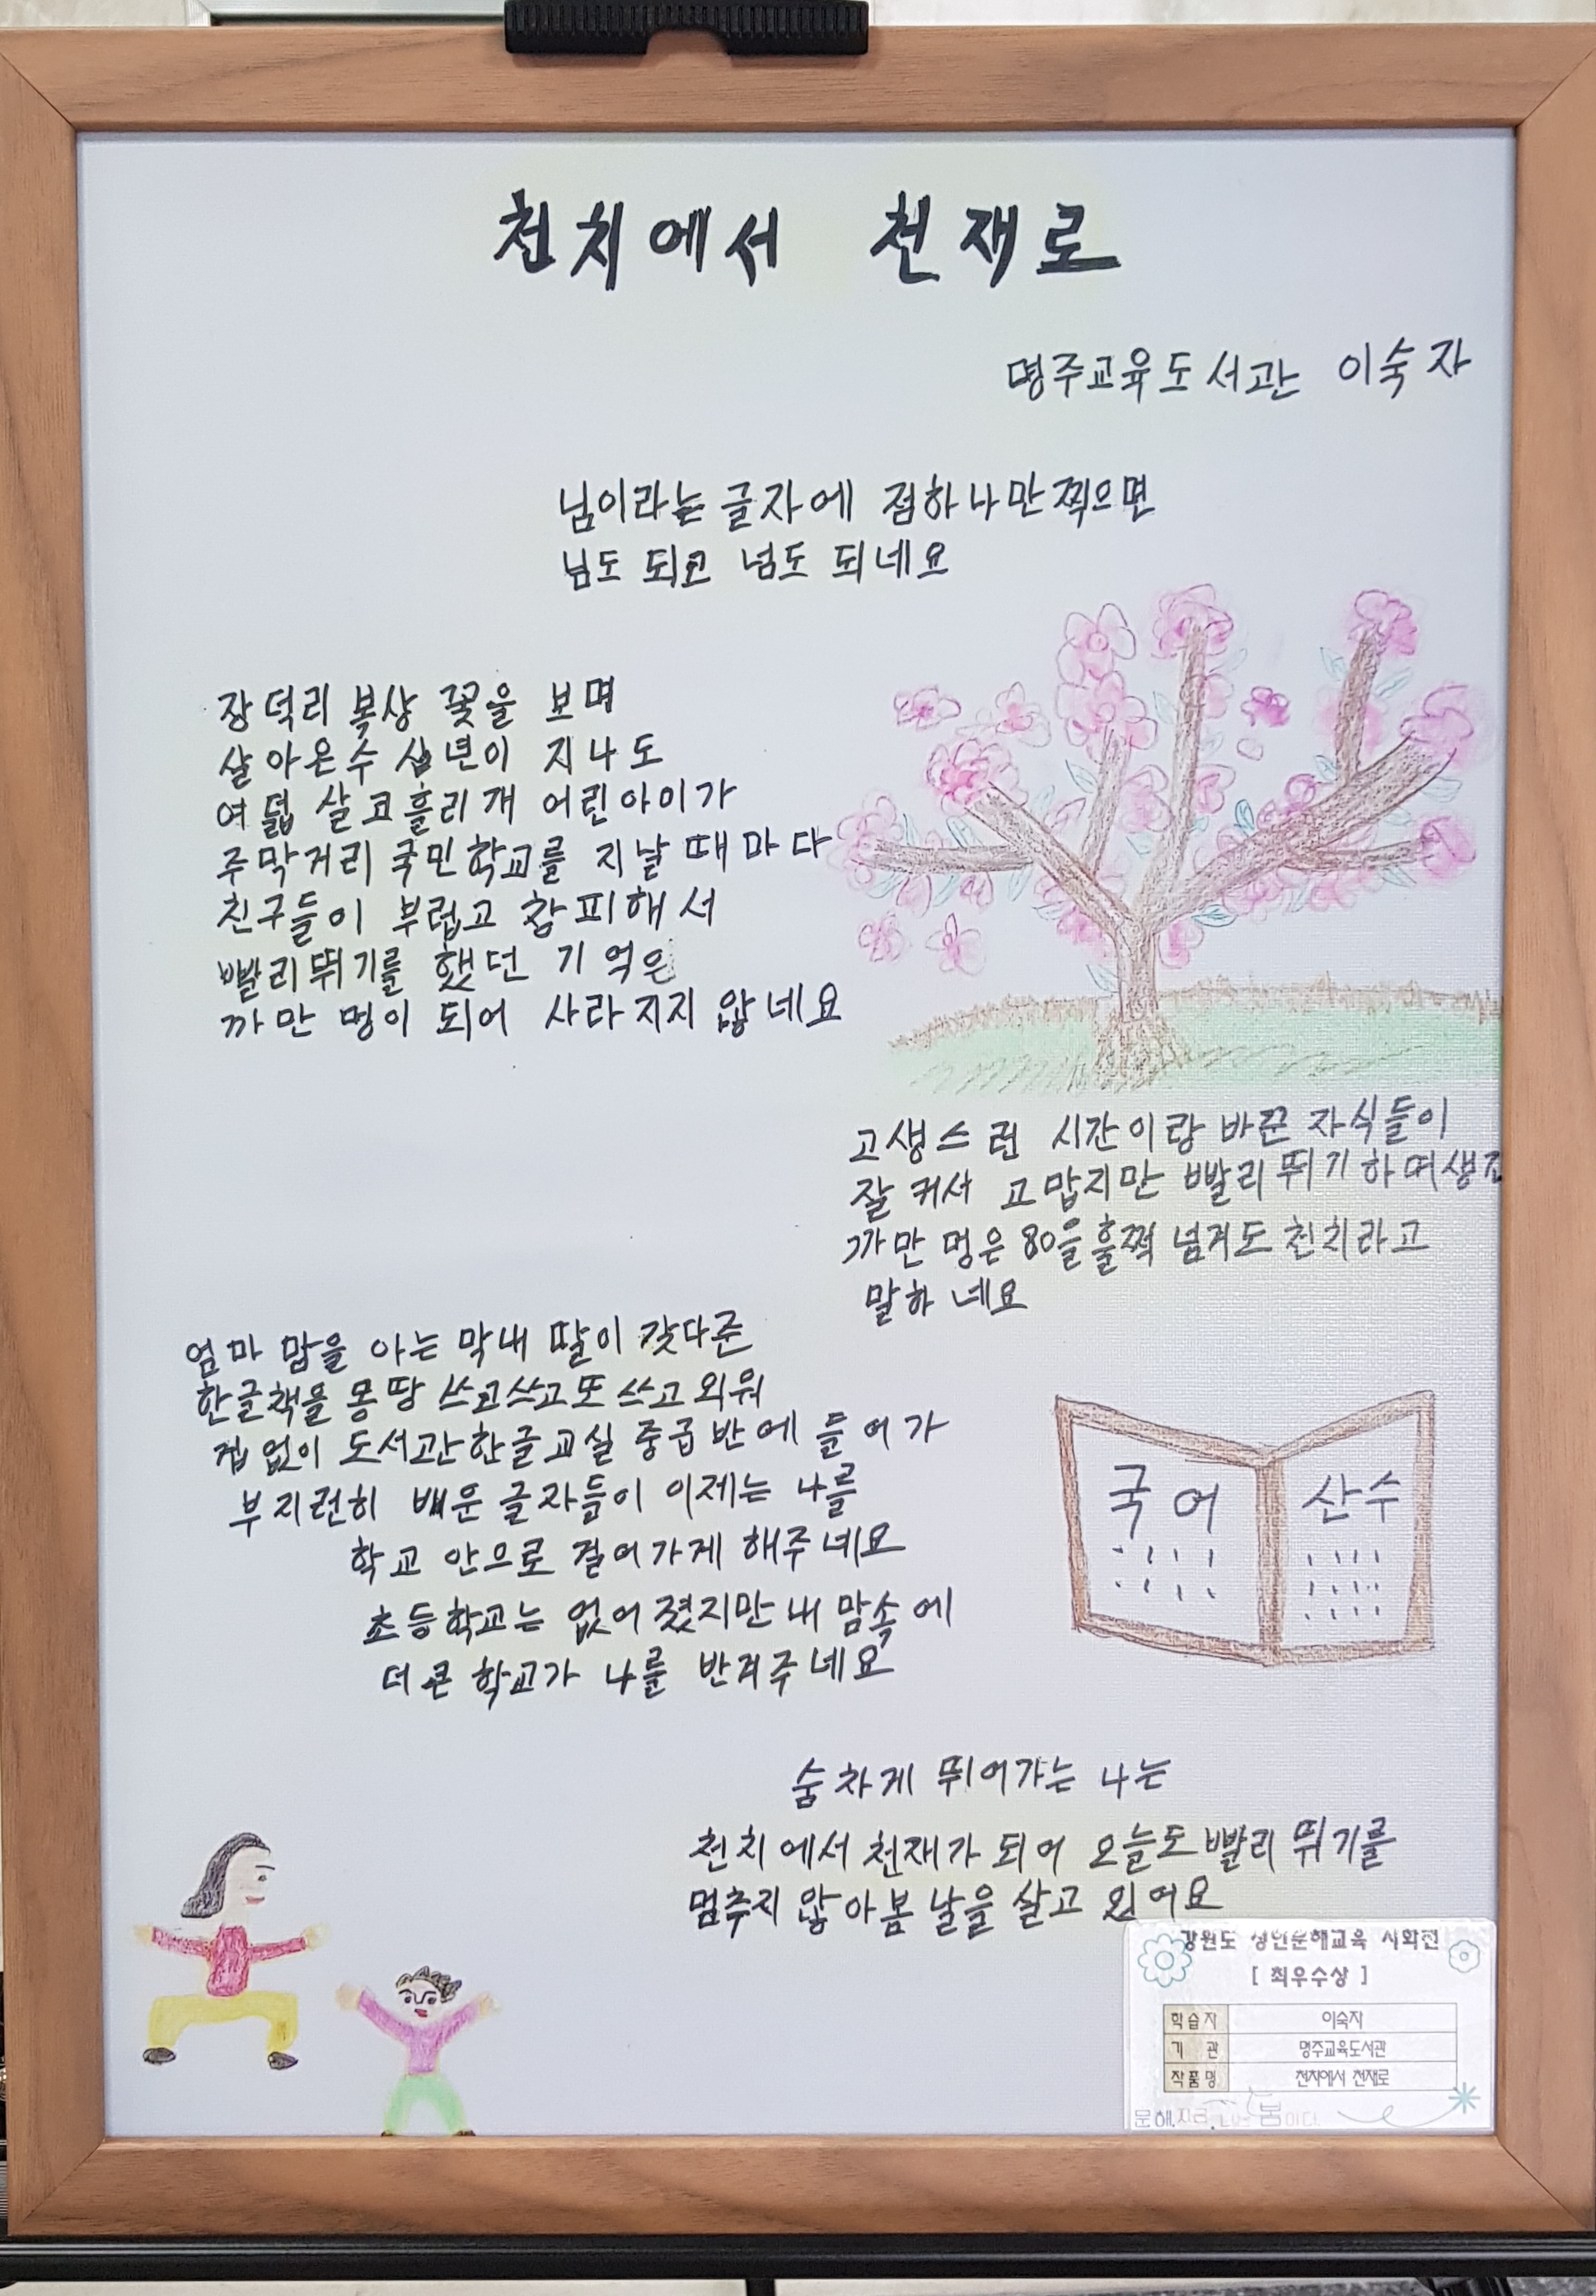 천치에서 천재로
명주교육도서관 이숙자
님이라는 글자에 점하나만찍으면
님도 되고 넘도 되네요
장덕리 복상 꽃을 보며
살아온수 십년이 지나도
여덟 살코흘리개 어린아이가
주막거리 국민학교를 지날때마다
친구들이 부럽고 창피해서
빨리뛰기를 했던 기억은
까만 멍이 되어 사라지지 않네요
고생스런 시간이랑 바꾼 자식들이
잘 커서 고맙지만 빨리뛰기하며생긴
까만 멍은 80을훌쩍 넘겨도 천치라고
말하네요
엄마 맘을 아는 막내 딸이 갖다준
한글책을 몽땅 쓰고쓰고또 쓰고 외워
겁없이 도서관한글교실 중급반에 들어가
부지런히 배운 글자들이 이제는 나를
학교 안으로 걸어가게 해주네요
초등학교는 없어졌지만 내 맘속에
더 큰 학교가 나를 반겨주네요
국어
산수
숨차게 뛰어가는 나는
천치에서 천재가 되어 오늘도빨리 뛰기를
멈추지 않아봄날을 살고 있어요
강원도 성인문해교육 시화전
[ 최우수상 ]
학습자 이숙자
기 관 명주교육도서관
작품명 천치에서 천재로
문해, 지금 봄이다